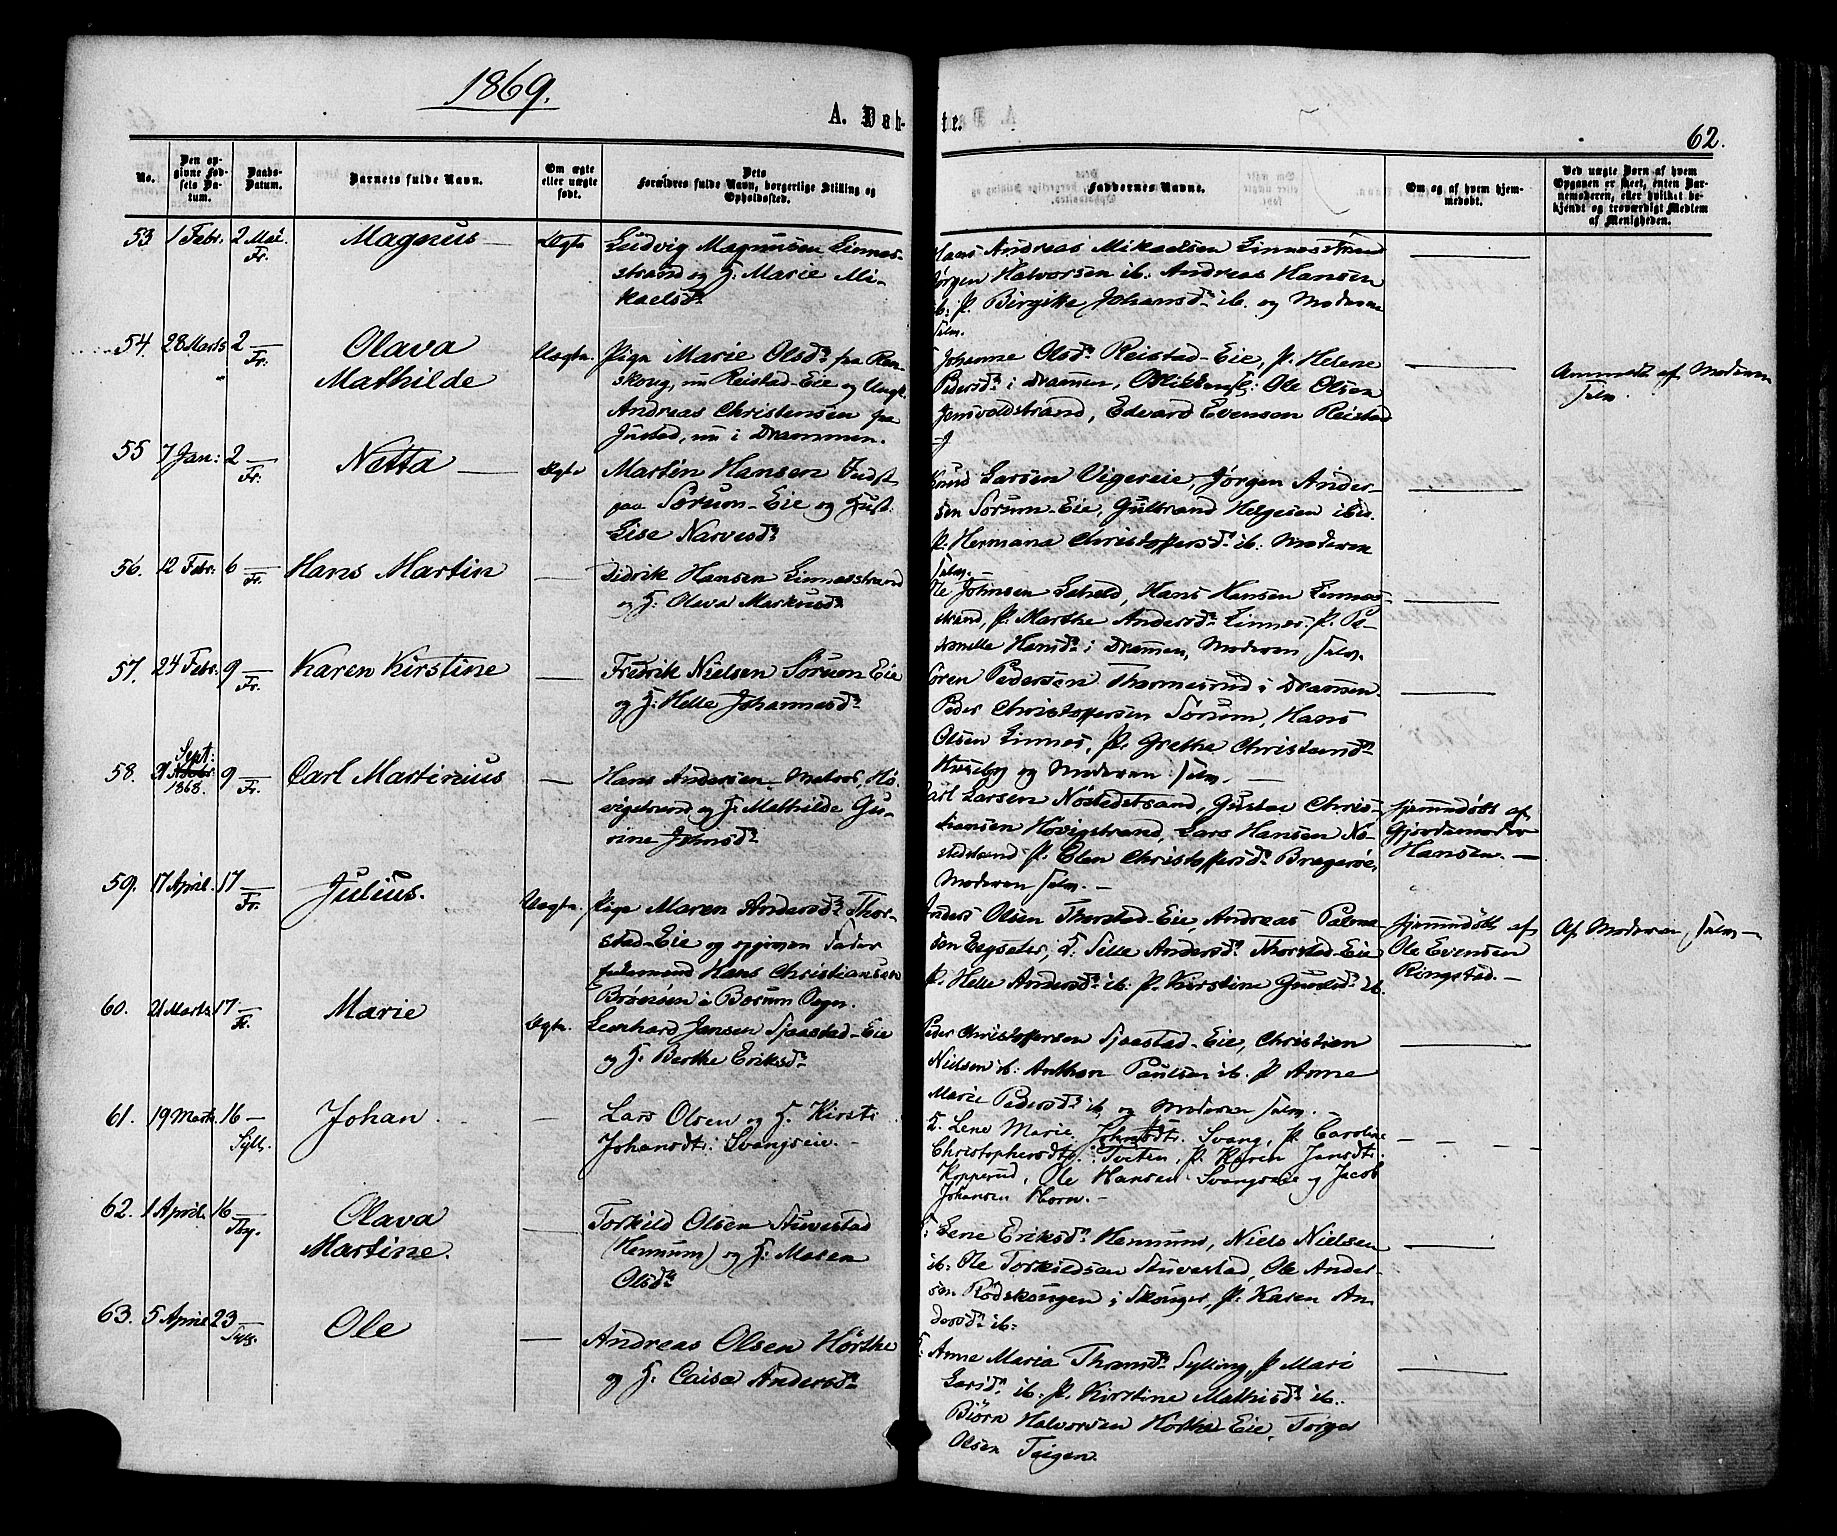 1869.
A. Døb-
te.
62.
No.
Den op-
givne Fød-
sels Da-
tum.
Daabs-
Datum.
Barnets fulde Navn.
Om ægte
eller uægte
født.
Dets
Forældres fulde Navn, borgerlige Stilling og
Opholdssted.
Faddernes Navne.
Om og af hvem hjem-
medøbt.
Ved uægte Børn af hvem
Opgaven er skeet, enten Bar-
nemoderen, eller hvilket be-
kjendt og troværdigt Medlem
af Menigheden.
53 1 Febr. 2 Mai Fr. Magnus — Ægte
Ludvig Magnusen Linnes-
strand og H. Marie Mi-
kaelsd:
Hans Andreas Mikaelsen Linnesstrand
Jørgen Halvorsen ib. Andreas Hansen
ib: P. Birgitte Johansd: ib. og Moderen
selv.
54. 28 Marts 2 — Fr. Olava
Mathilde
Uægte.
Pige Marie Olsd: fra Ren-
skoug, nu Reistad-Eie og Ungk.
Andreas Christensen fra
Justad, nu i Drammen.
Johanne Olsd: Reistad-Eie, P. Helene
Pedersd: i Drammen, Ole Olsen
Jemvoldstrand, Edvard Evensen Reistad
Anmeldt af Moderen
selv.
55 7 Jan: 2 — Fr. Netta — Ægte
Martin Hansen Indst
paa Sørum-Eie og Hust.
Lise Narvesd:
Knud Larsen Vigereie, Jørgen Ander-
sen Sørum-Eie, Gulbrand Helgesen ibid.
P. Hermana Christoffersd: ib. Moderen
selv.
56. 12 Febr. 6 — Fr. Hans Martin —
Didrik Hansen Linnesstrand
og H: Olava Markusd:
Ole Johnsen Saheld, Hans Hansen Linnes-
strand, P. Marthe Andersd: Linnes. P. Pe-
tronelle Hansd: i Drammen, Moderen selv.
57. 24 Febr. 9 — Fr. Karen Kirstine —
Fredrik Nielsen Sørum Eie
og H: Helle Johannesd:
Søren Pedersen Thornesrud i Drammen.
Peder Christoffersen Sørum, Hans
Olsen Linnes, P. Grethe Christiansd:
Huseby og Moderen selv. —
58. 21 Sept: 1868. 9 — Fr. Carl Martinius —
Hans Andersen, Matros, Hø-
vigstrand og H: Mathilde Gu-
rine Johnsd:
Carl Larsen Nøstedstrand, Gustav Chris-
tiansen Hövigstrand, Lars Hansen Nø-
stedstrand P. Elen Christoffersd: Bragerøe,
Moderen selv. —
hjemmedøbt af
Gjordemoder
Hansen. —
59. 17 April. 17 — Fr. Julius.
Uægte.
Pige Maren Andersd: Thor-
stad-Eie og opgiven Fader
Hans Christiansen
i Borum Sogn.
Anders Olsen Thorstad-Eie, Andreas
H. Sille Andersd: Thorstad-Eie
P. Helle Andersd: ib: P. Kirstine Gundd: ib.
hjemmedøbt af
Ole Evensen
Ringstad. —
Af Moderen selv —
60. 21 Marts 17 — Fr. Marie
Ægte.
Leonhard Jansen Sjaastad-Eie
og H. Berthe Eriksd:
Peder Christoffersen Sjaastad-Eie, Christian
Nielsen ib: Anthon Paulsen ib. P. Anne
Marie Pedersd: ib, og Moderen selv. —
61. 19 Marts 16 — Syll. Johan. —
Lars Olsen og H. Kirsti
Johansdt: Svangseie. —
H. Lene Marie Johnsdt: Svang, P. Caroline
Christophersdt: Tveten, P. Karen Jansdt:
Kopperud, Ole Hansen Svangseie og Jacob
Johansen Horn. —
62. 1 April. 16 — Olava
Martine.
Torkild Olsen Stuvestad
(Hennum) og H: Maren
Olsd:
H: Lene Eriksd: Hennum, Niels Nielsen
ib. Ole Torkildsen Stuvestad, Ole Ander-
sen Rødskougen i Skouger, P. Karen An-
dersd: ib:
63. 5 April 23 — Syll. Ole —
Andreas Olsen Hørthe
og H: Caisa Andersd:
H: Anne Maria Thomsd: Sylling, P. Mari
Larsd: ib: P. Kirstine Mathisd: ib.
Biørn Halvorsen Hørthe Eie, Torger
Olsen Teigen.